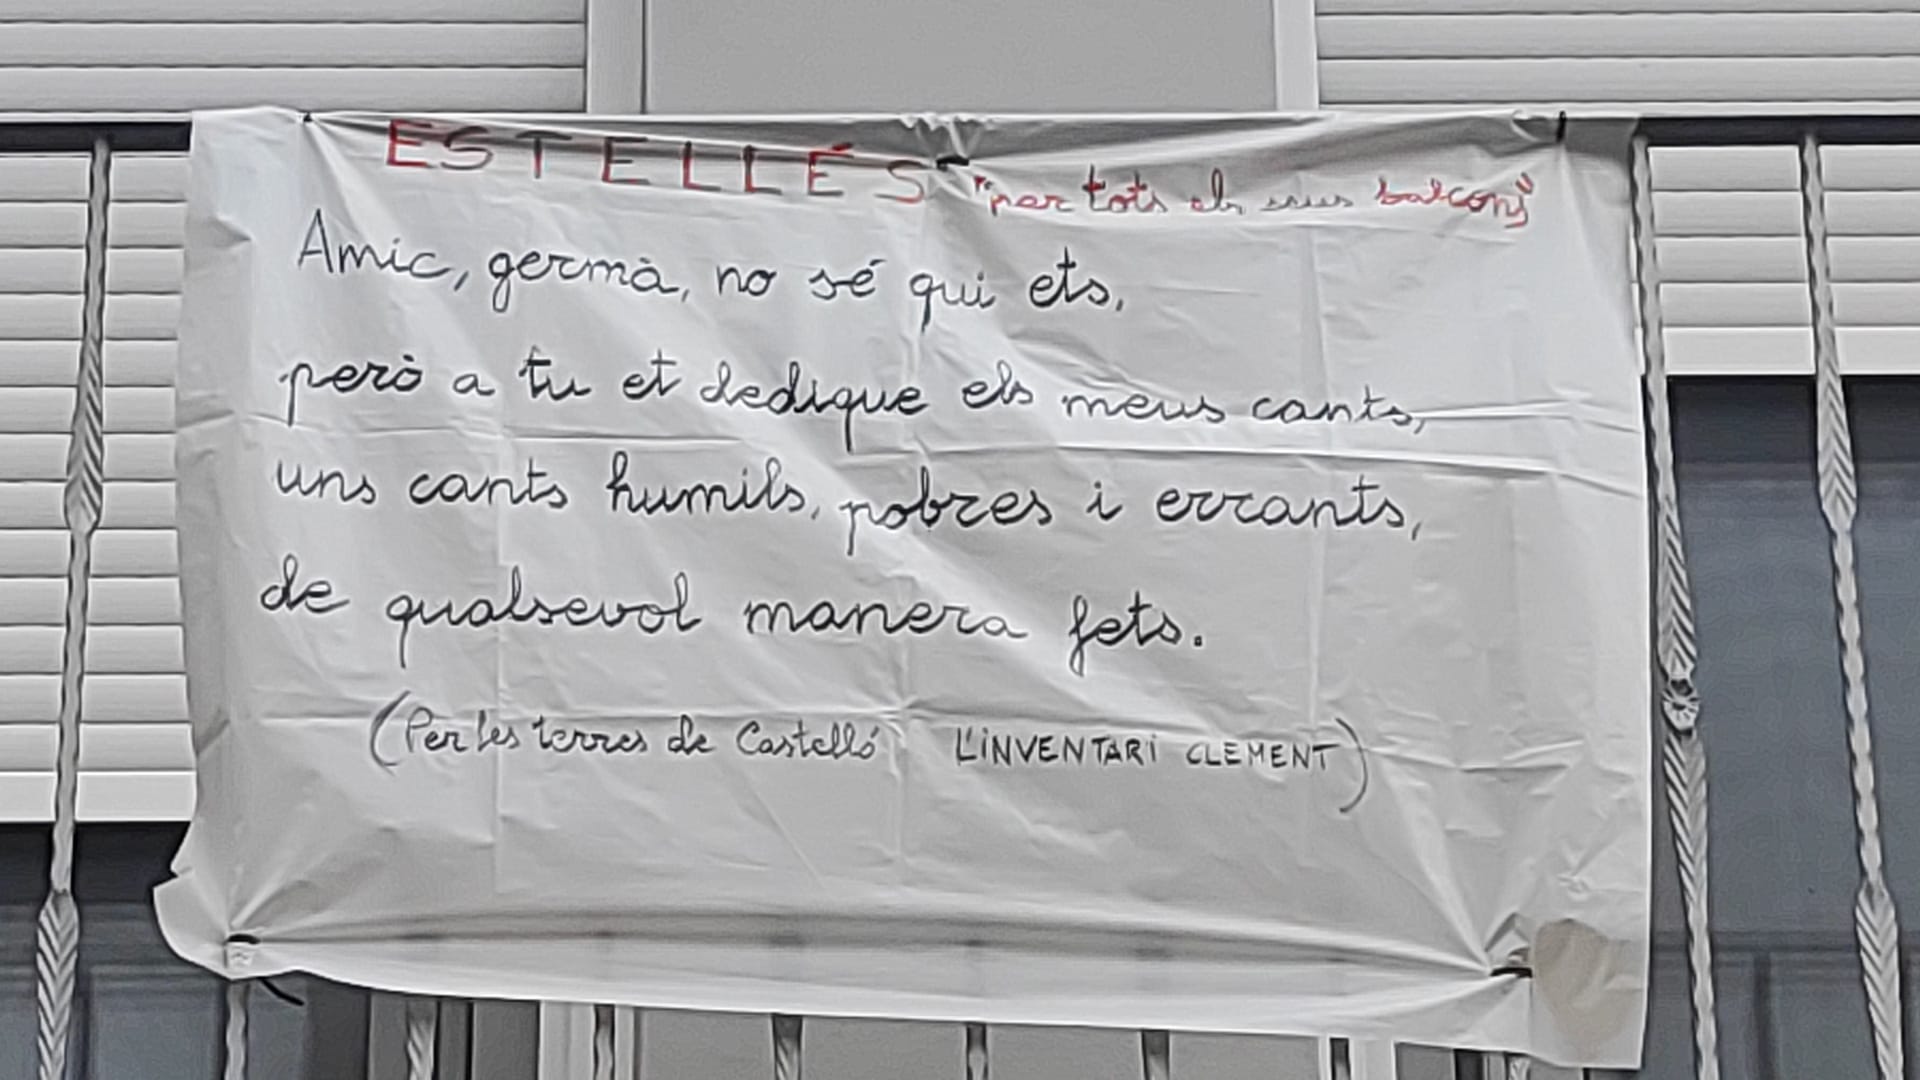 ESTELLÉS "per tots els seus balcons"
Amic, germà, no sé qui ets,
però a tu et dedique els meus cants,
uns cants humils, pobres i errants,
de qualsevol manera fets.
(Per les terres de Castelló L'INVENTARI CLEMENT)